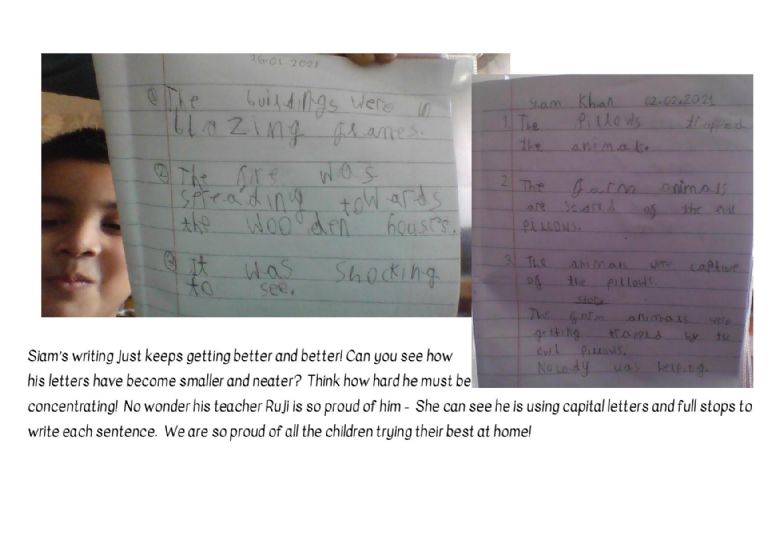 26-01-2021
1 The buildings were in
blazing flames.
2 The fire was
spreading towards
the wooden houses.
3 It was shocking
to see.
Siam Khan 02.02.2021
1. The Pillows trapped
the animals.
2 The farm animals
are scared of the evil
pillows.
3. The animals were captive
of the pillows.
Story
The farm animals were
getting trapped by the
evil pillows.
Nobody was helping.
Siam's writing just keeps getting better and better! Can you see how
his letters have become smaller and neater? Think how hard he must be
concentrating! No wonder his teacher Ruji is so proud of him - She can see he is using capital letters and full stops to
write each sentence. We are so proud of all the children trying their best at home!